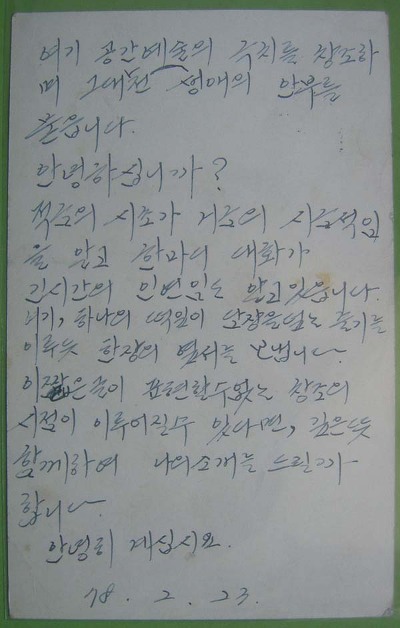 여기 공간예술의 극치를 창조하
며 그대전 생애의 안부를
묻읍니다.
안녕하십니까?
의 시초가 의
을 알고 한마디 대화가
긴시간의 인연임을 알고있읍니다.
여기, 하나의 떡잎이 담장을넘는 줄기를
이루듯 한장의 엽서를 보냅니다.
이 짧은글이 표현할수없는 창조의
시절이 이루어질수 있다면, 깊은뜻
함께하여 나의소개를 드릴까
합니다.
안녕히 계십시요.
78. 2. 23.